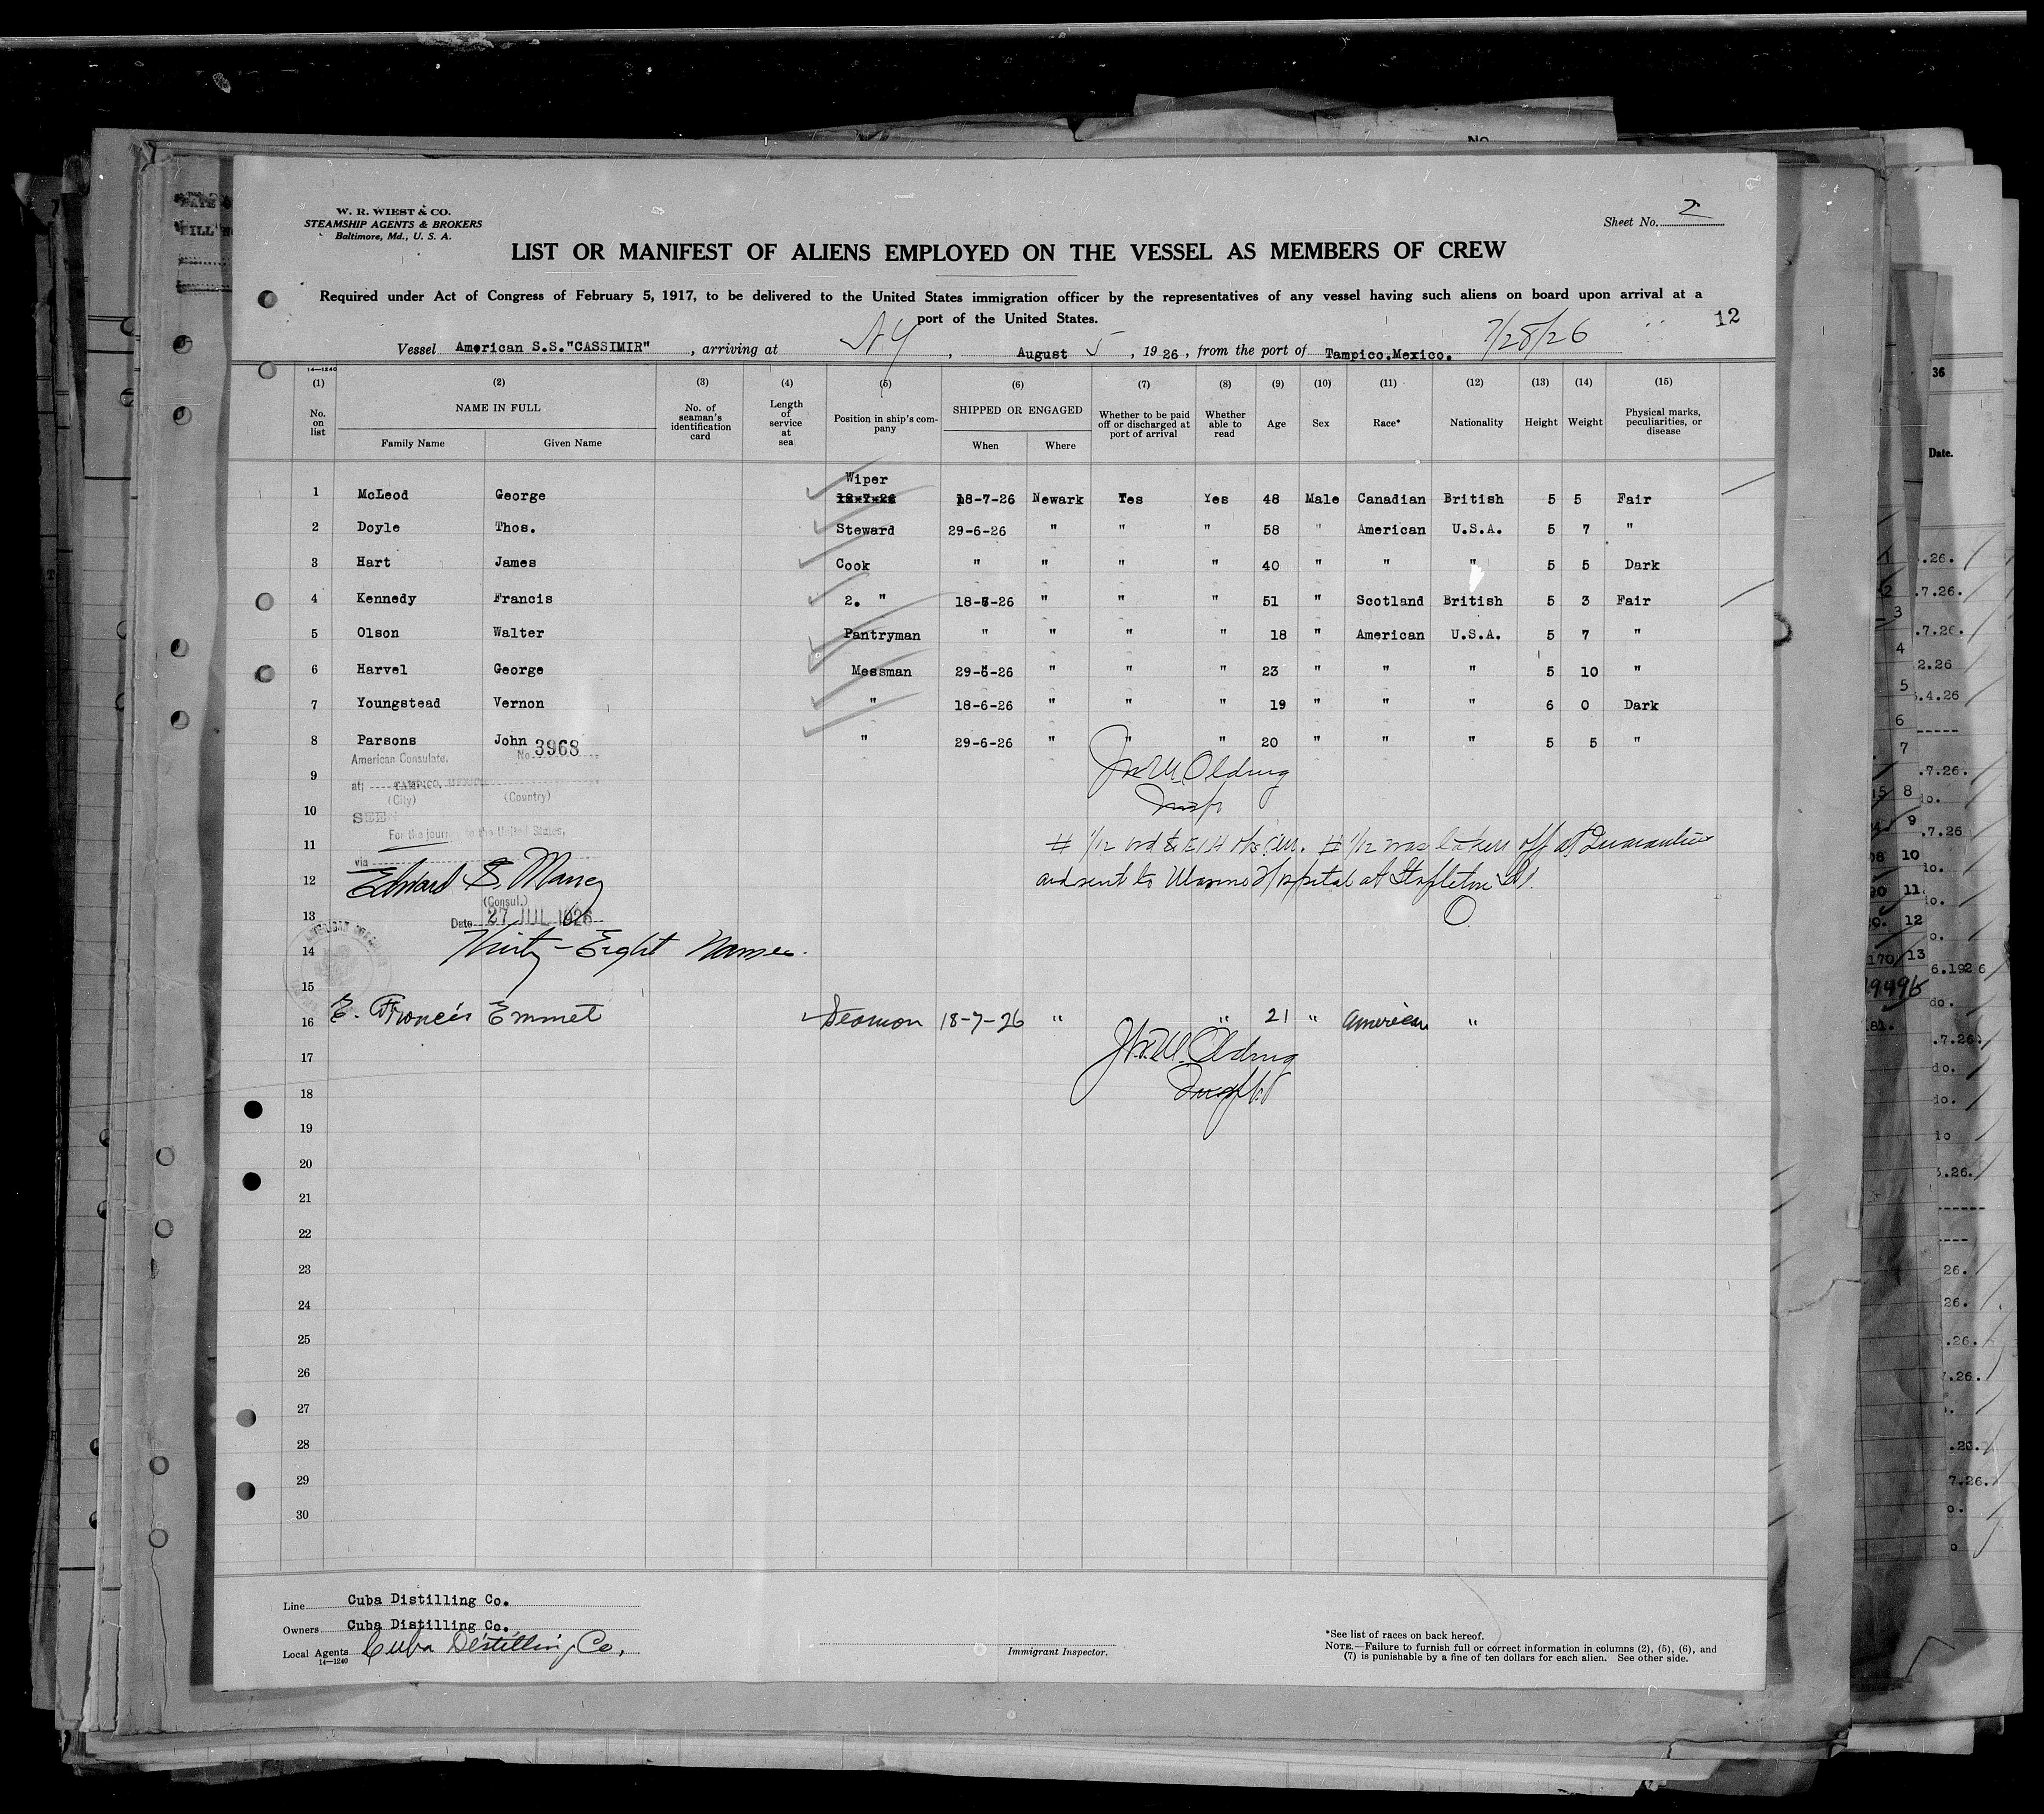 W. R. WIEST & CO.
STEAMSHIP AGENTS & BROKERS
Baltimore, Md., U. S. A.
Sheet No. 2
LIST OR MANIFEST OF ALIENS EMPLOYED ON THE VESSEL AS MEMBERS OF CREW
Required under Act of Congress of February 5, 1917, to be delivered to the United States immigration officer by the representatives of any vessel having such aliens on board upon arrival at a
port of the United States.
12
Vessel American S.S."CASSIMIR", arriving at NY, August 5, 1926, from the port of Tampico.Mexico. 7/28/26
14—1240
(1) (2) (3) (4) (5) (6) (7) (8) (9) (10) (11) (12) (13) (14) (15)
No. on list NAME IN FULL Family Name Given Name No. of seaman's identification card Length of service at sea Position in ship's company SHIPPED OR ENGAGED When Where Whether to be paid off or discharged at port of arrival Whether able to read Age Sex Race* Nationality Height Weight Physical marks, peculiarities, or disease
Wiper
1 McLeod George 18-7-26 Newark Yes Yes 48 Male Canadian British 5 5 Fair
2 Doyle Thos. Steward 29-6-26 " " " 58 " American U.S.A. 5 7 "
3 Hart James Cook " " " " 40 " " " 5 5 Dark
4 Kennedy Francis 2. " 18-6-26 " " " 51 " Scotland British 5 3 Fair
5 Olson Walter Pantryman " " " " 18 " American U.S.A. 5 7 "
6 Harvel George Messman 29-6-26 " " " 23 " " " 5 10 "
7 Youngstead Vernon " 18-6-26 " " " 19 " " " 6 0 Dark
8 Parsons John " 29-6-26 " " " 20 " " " 5 5 "
American Consulate. No. 3968
9 at; TAMPICO, MEXICO
(City) (Country)
10 SEEN
For the journey to the United States,
11 via
12 Edward S. Maney
and sent to Marine Hospital at Stapleton
(Consul.)
13 Date 27 JUL 1926
14 Thirty-Eight Names.
15
16 E. Francis Emmet Seaman 18-7-26 " " 21 " American "
17
18
19
20
21
22
23
24
25
26
27
28
29
30
Line Cuba Distilling Co.
Owners Cuba Distilling Co.
Local Agents Cuba Distilling Co.
14—1240
Immigrant Inspector.
*See list of races on back hereof.
NOTE.—Failure to furnish full or correct information in columns (2), (5), (6), and
(7) is punishable by a fine of ten dollars for each alien. See other side.